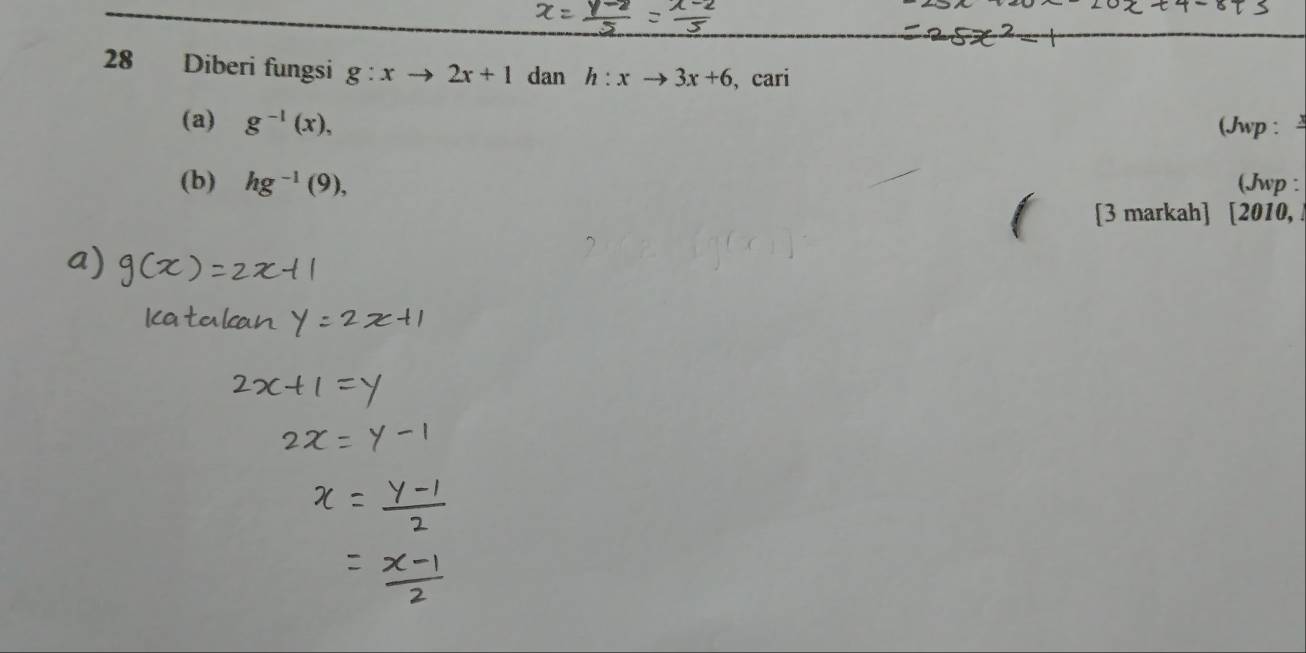 x = y-2/5 = x-2/5
= 25x² - 1
28 Diberi fungsi g : x → 2x + 1 dan h : x → 3x +6, cari
(a) g⁻¹ (x), (Jwp :
(b) hg⁻¹ (9), (Jwp :
[3 markah] [2010,
a) g(x) = 2x+1
katakan y = 2x+1
2x+1 = y
2x = y-1
x = y-1/2
= x-1/2